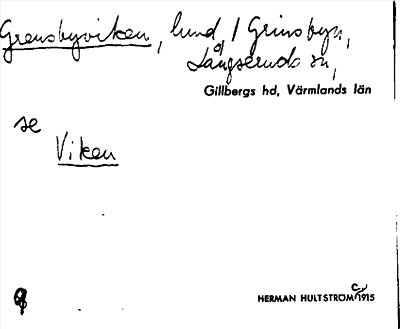 Grensbyviken, lund, / Grinsbyn,
Långseruds sn,
Gillbergs hd, Värmlands län
se
Viken
HERMAN HULTSTRÖM C 1915